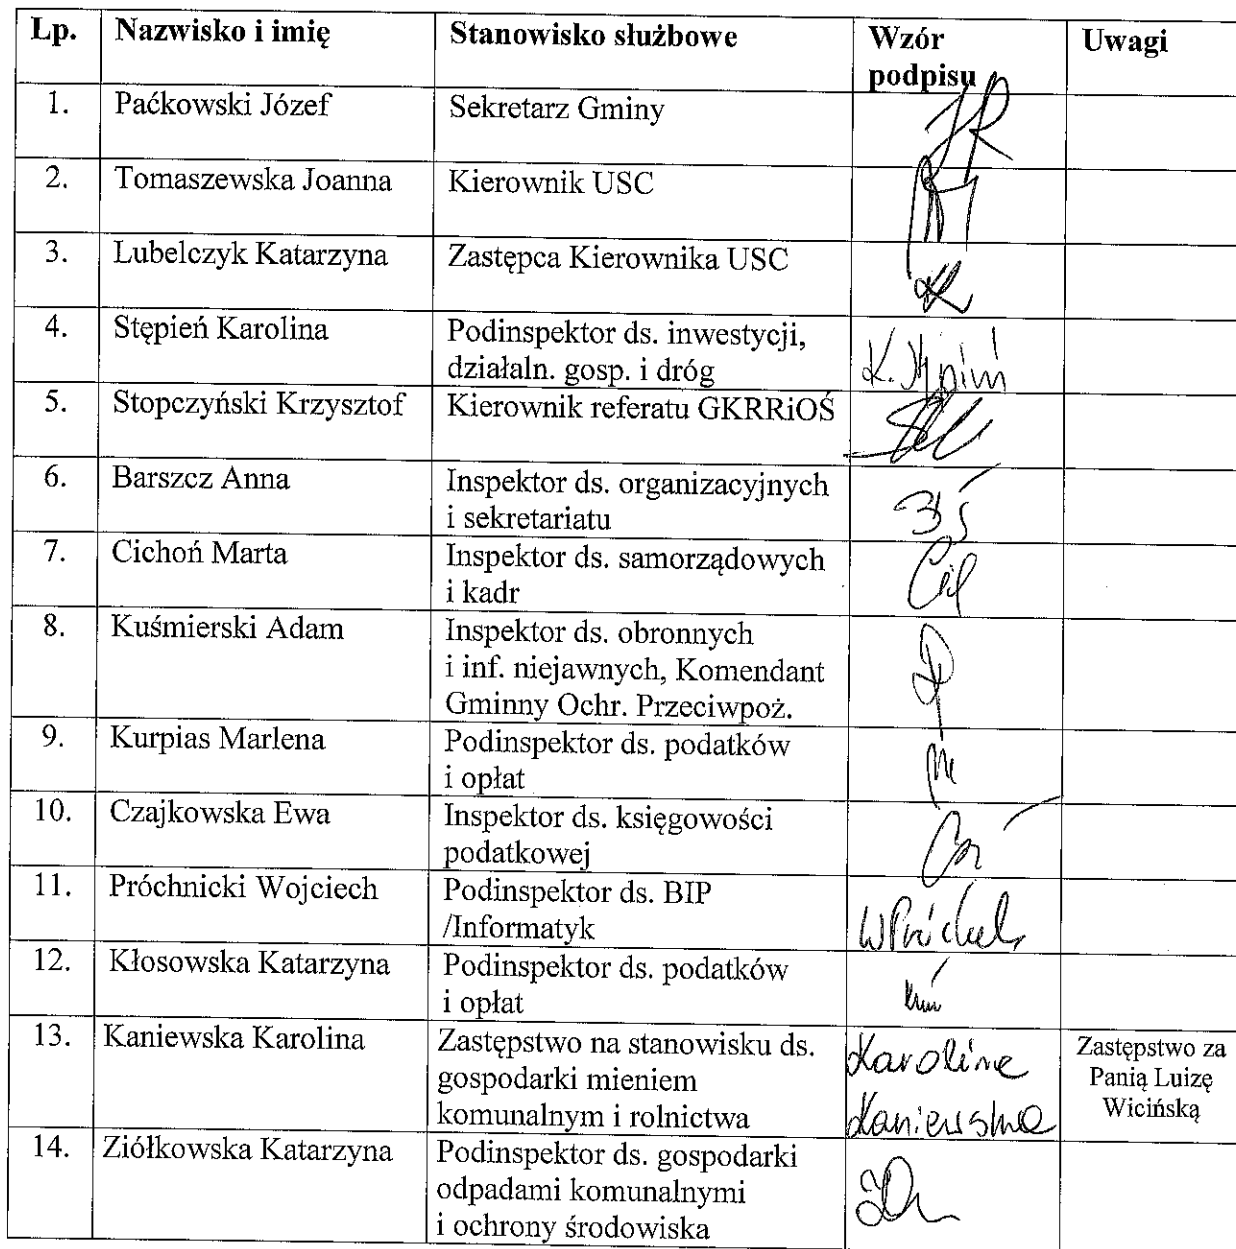 Lp. Nazwisko i imię Stanowisko służbowe Wzór Uwagi
podpisu
1. Paćkowski Józef Sekretarz Gminy
2. Tomaszewska Joanna Kierownik USC
3. Lubelczyk Katarzyna Zastępca Kierownika USC
4. Stępień Karolina Podinspektor ds. inwestycji,
działaln. gosp. i dróg
5. Stopczyński Krzysztof Kierownik referatu GKRRiOŚ
6. Barszcz Anna Inspektor ds. organizacyjnych
i sekretariatu
7. Cichoń Marta Inspektor ds. samorządowych
i kadr
8. Kuśmierski Adam Inspektor ds. obronnych
i inf. niejawnych, Komendant
Gminny Ochr. Przeciwpoż.
9. Kurpias Marlena Podinspektor ds. podatków
i opłat
10. Czajkowska Ewa Inspektor ds. księgowości
podatkowej
11. Próchnicki Wojciech Podinspektor ds. BIP
/Informatyk
12. Kłosowska Katarzyna Podinspektor ds. podatków
i opłat
13. Kaniewska Karolina Zastępstwo na stanowisku ds. Karolina Zastępstwo za
gospodarki mieniem Panią Luizę
komunalnym i rolnictwa Kaniewska Wicińską
14. Ziółkowska Katarzyna Podinspektor ds. gospodarki
odpadami komunalnymi
i ochrony środowiska